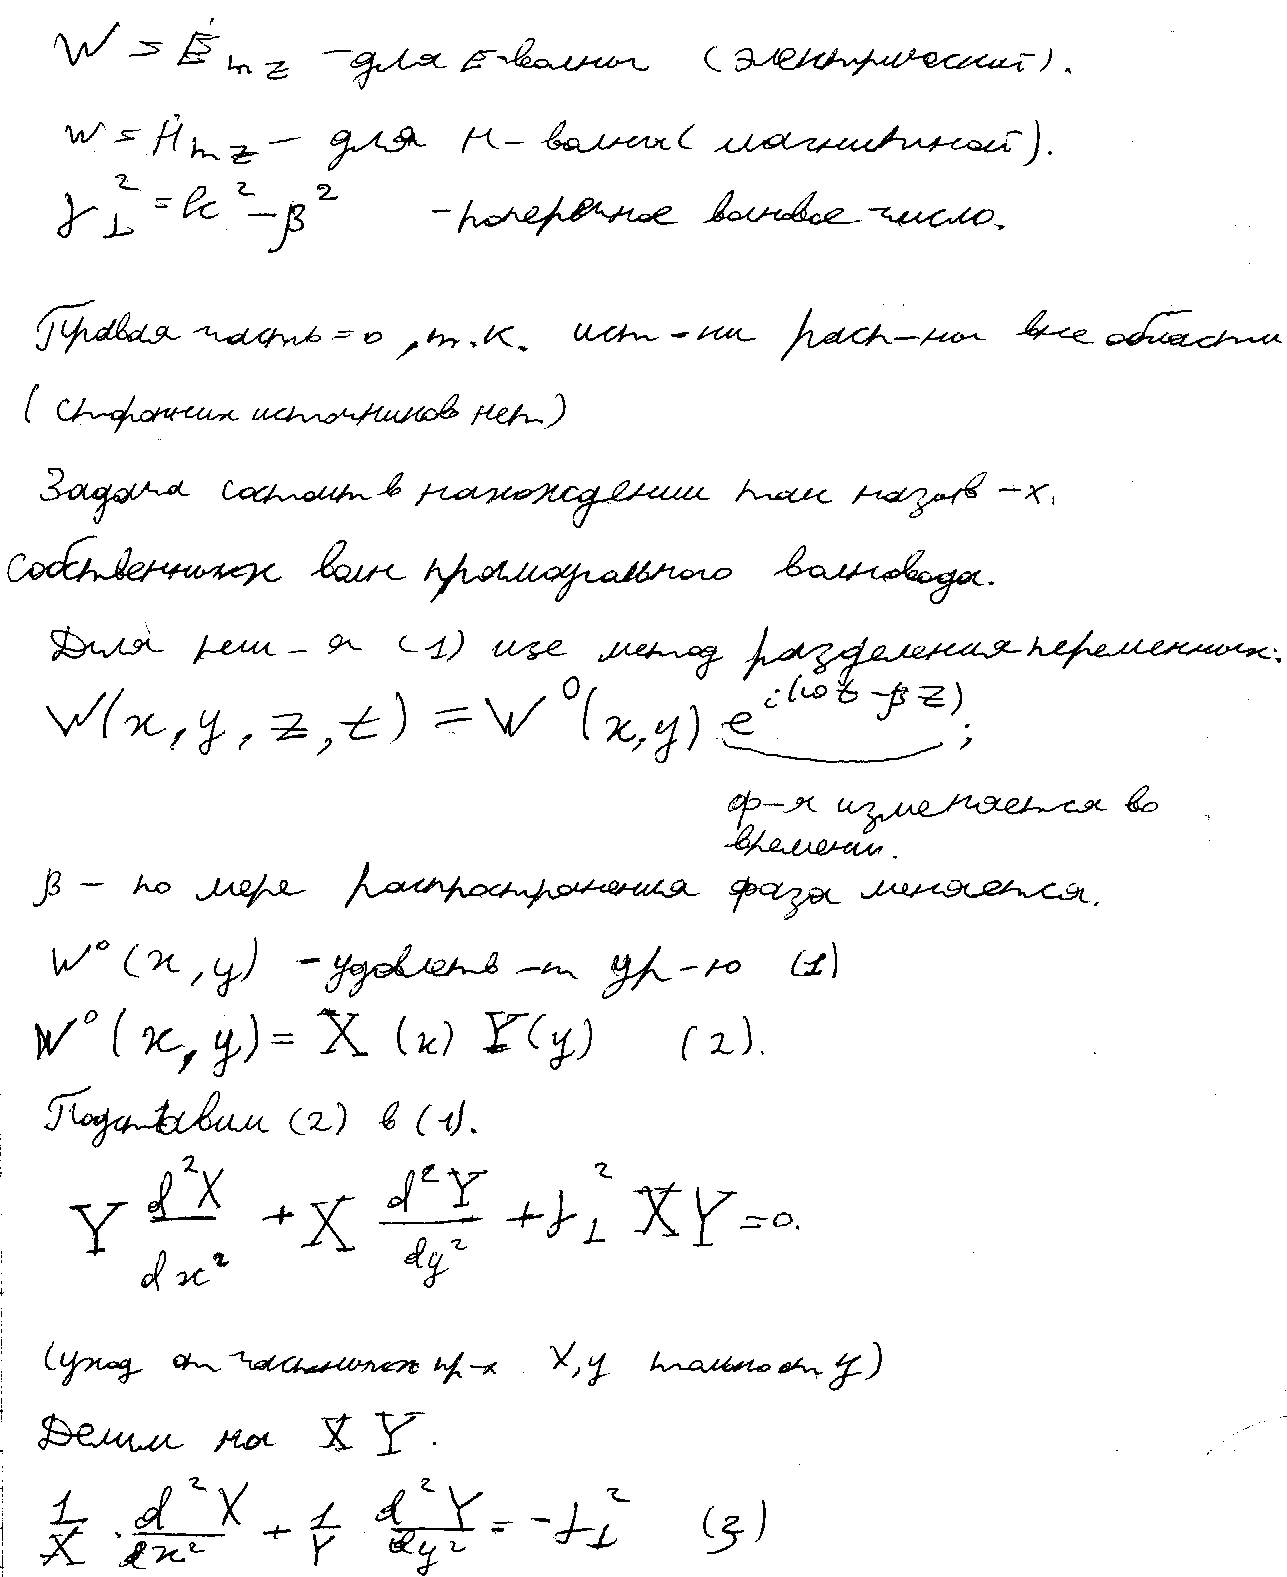 W = Ė_mz – для E-волны (электрический).
W = Ḣ_mz – для H-волны (магнитной).
γ⊥² = k² – β² – поперечное волновое число.
Правая часть = 0, т.к. ист-ки расп-ны вне области
(сторонних источников нет)
Задача состоит в нахождении так назыв-х.
собственных волн прямоугольного волновода.
Для реш-я (1) исп метод разделения переменных:
W(x, y, z, t) = W⁰(x, y) e^{i(ωt – βz)};
ф-я изменяется во
времени.
β – по мере распространения фаза меняется.
W⁰(x, y) – удовлетв-т ур-ю (1)
W⁰(x, y) = X(x) Y(y) (2).
Подставим (2) в (1).
Y d²X/dx² + X d²Y/dy² + γ⊥² XY = 0.
(уход от частных пр-х X, y только от y)
Делим на XY.
1/X · d²X/dx² + 1/Y d²Y/dy² = –γ⊥² (3)